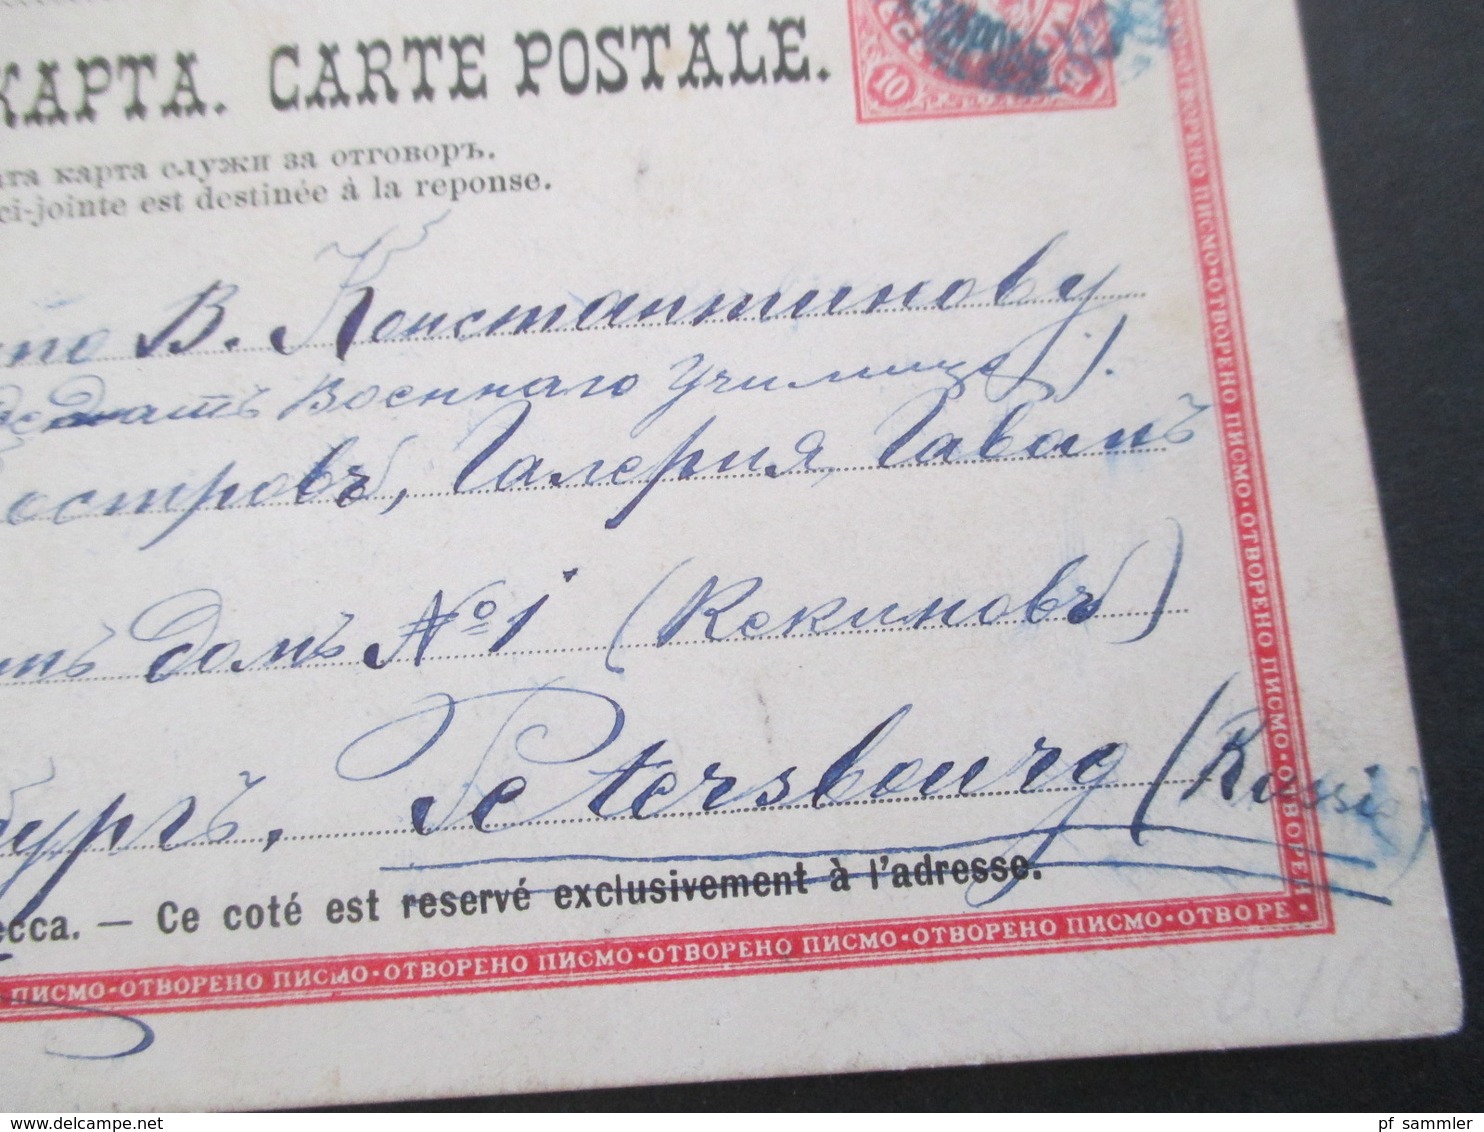 КАРТА. CARTE POSTALE.
10
ата карта служи за отговоръ.
ci-jointe est destinée à la reponse.
В. Константинову
Военнаго Училища).
островъ, Галерная Гавань
домъ № 1 (Кекиновъ)
бургъ, Petersbourg (Russie)
есса. — Ce coté est reservé exclusivement à l'adresse.
ПИСМО·ОТВОРЕНО ПИСМО·ОТВОРЕНО ПИСМО·ОТВОРЕНО ПИСМО·ОТВОРЕНО ПИСМО·ОТВОРЕ
ОТВОРЕНО ПИСМО·ОТВОРЕНО ПИСМО·ОТВОРЕНО ПИСМО·ОТВОРЕН
pf_sammler